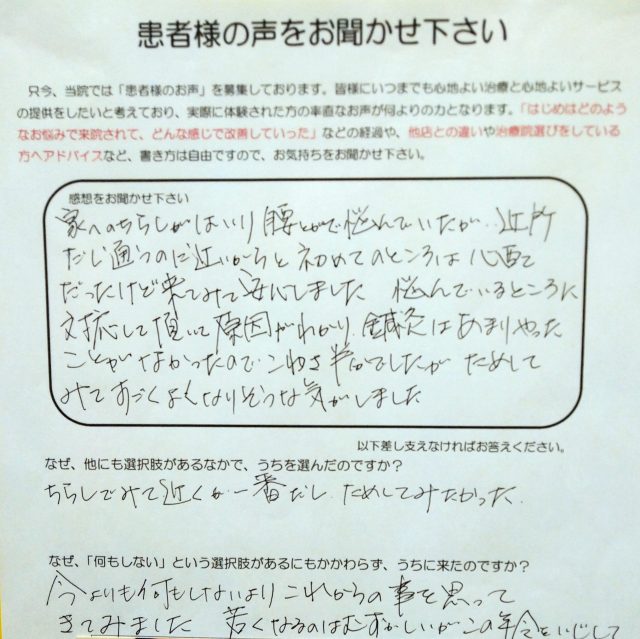 患者様の声をお聞かせ下さい
只今、当院では「患者様のお声」を募集しております。皆様にいつまでも心地よい治療と心地よいサービス
の提供をしたいと考えており、実際に体験された方の率直なお声が何よりの力となります。「はじめはどのよう
なお悩みで来院されて、どんな感じで改善していった」などの経過や、他店との違いや治療院選びをしている
方へアドバイスなど、書き方は自由ですので、お気持ちをお聞かせ下さい。
感想をお聞かせ下さい
家へのちらしがはいり 腰とかで悩んでいたが、近所
だし通うのに近いからと 初めてのところは心配
だったけど来てみて安心しました 悩んでいるところに
対応して頂いて原因がわかり、鍼灸はあまりやった
ことがなかったのでこわさ半分でしたが ためして
みてすごくよくなりそうな気がしました
以下差し支えなければお答えください。
なぜ、他にも選択肢があるなかで、うちを選んだのですか?
ちらしでみて近くが一番だし、ためしてみたかった、
なぜ、「何もしない」という選択肢があるにもかかわらず、うちに来たのですか?
今よりも何もしないより これからの事を思って
きてみました 若くなるのはむずかしいがこの年令をいじして